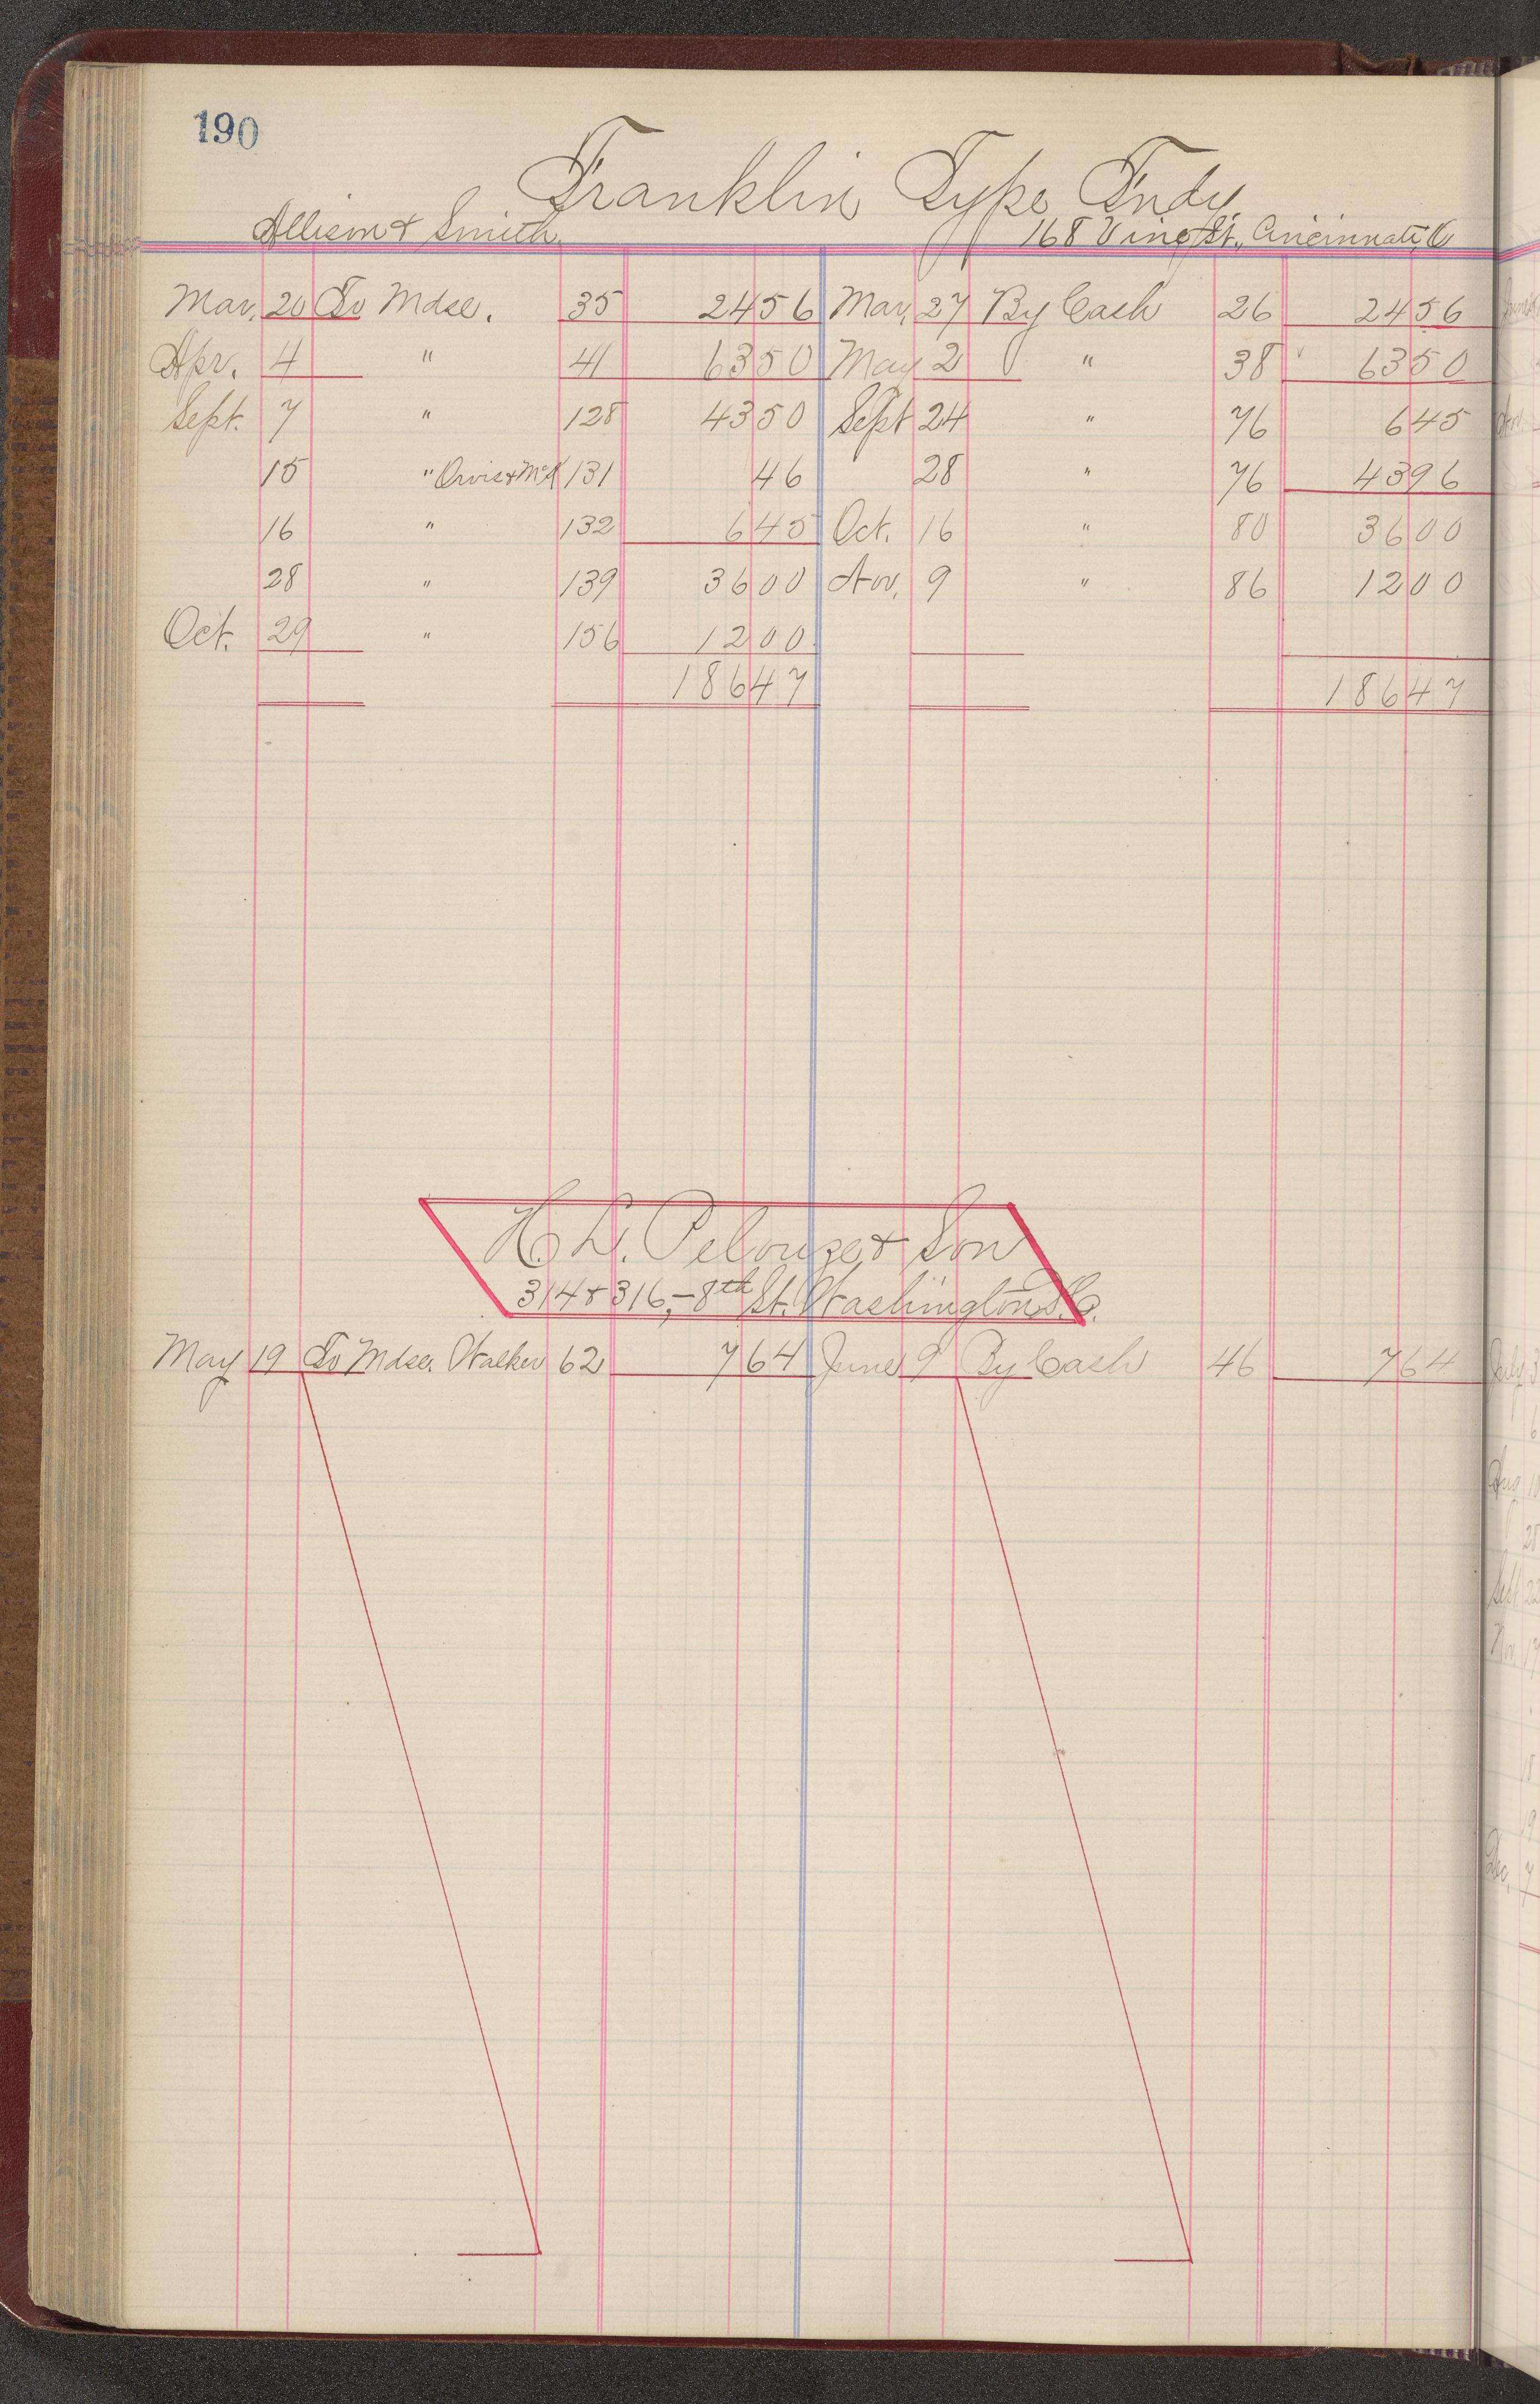 190
Franklin Type Fndy
Allison & Smith 168 Vine St., Cincinnati, O
Mar. 20 To Mdse. 35 2456 Mar. 27 By Cash 26 2456
Apr. 4 " 41 6350 May 2 " 38 6350
Sept. 7 " 128 4350 Sept 24 " 76 645
15 " Orvis & McK 131 46 28 " 76 4396
16 " 132 645 Oct. 16 " 80 3600
28 " 139 3600 Nov. 9 " 86 1200
Oct. 29 " 156 1200
18647 18647
H. L. Pelouze & Son
314 & 316, - 8th St. Washington D.C.
May 19 To Mdse. Walker 62 764 June 9 By Cash 46 764